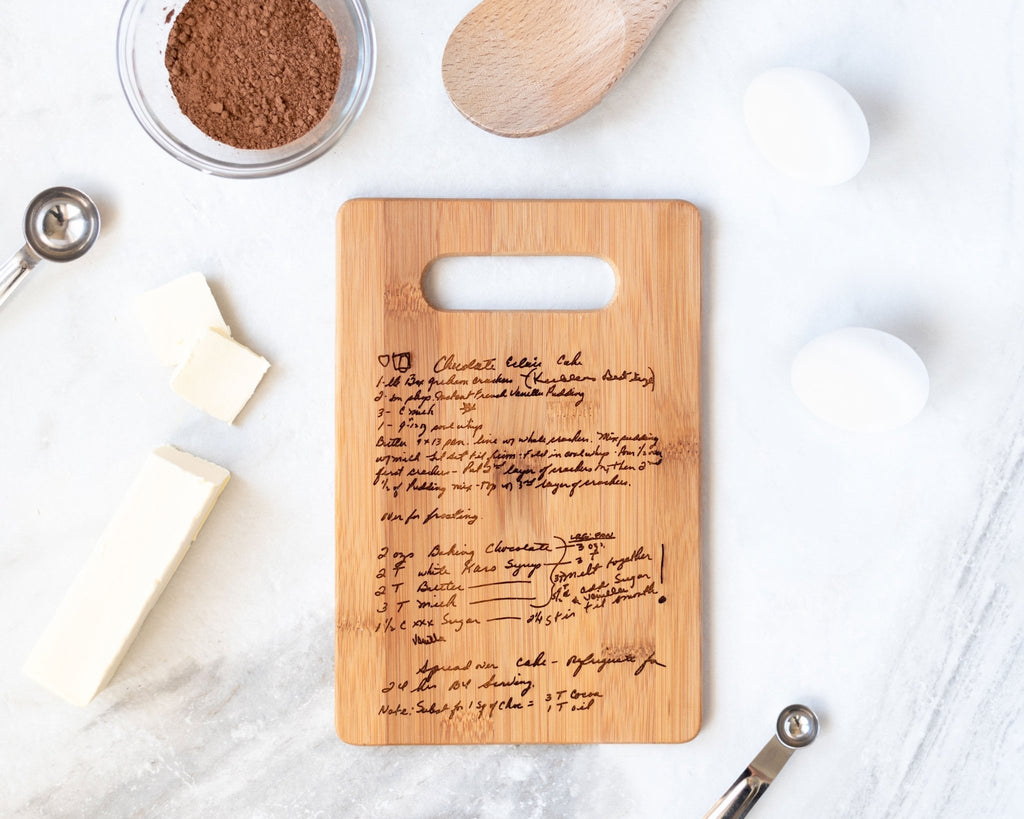 Chocolate Eclair Cake
1-lb Box graham crackers - (Keeblers Best Size)
2-sm pkgs. Instant French Vanilla Pudding
3- C milk
1- 9-12g cool whip
Butter 9x13 pan. line w/ whole crackers. Mix pudding
w/ milk let set til firm. Fold in cool whip. Pour 1/2 over
first crackers - Put 2nd layer of crackers then 2nd
1/2 of Pudding mix - Top w/ 3rd layer of crackers.
over for frosting.
2 ozs Baking Chocolate 3 ozs.
2 T white Karo Syrup 3 T
2 T Butter 3T melt together
3 T milk add Sugar
& Vanilla
1 1/2 C xxx Sugar 2 1/4 Stir til smooth
Vanilla
Spread over cake - Refrigerate for
24 hrs B4 Serving.
Note: Subst for 1 sq of Choc = 3 T Cocoa
1 T oil